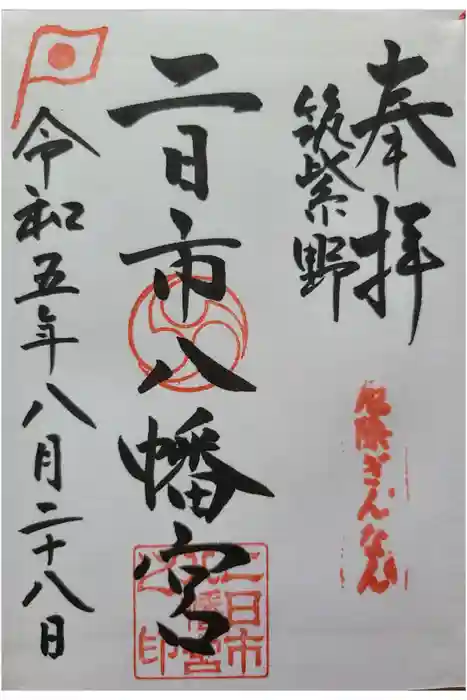 奉拝
筑紫野
厄除ぎんなん
二日市八幡宮
二日市
八幡宮
之印
令和五年八月二十八日